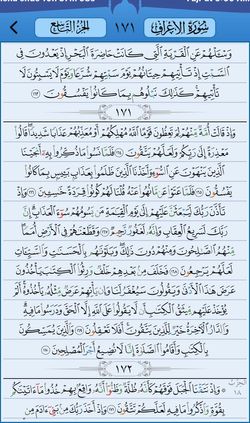 سُورَةُ الأَعْرَافِ ١٧١ الجُزْءُ التَّاسِعُ
وَسْـَٔلْهُمْ عَنِ ٱلْقَرْيَةِ ٱلَّتِى كَانَتْ حَاضِرَةَ ٱلْبَحْرِ إِذْ يَعْدُونَ فِى
ٱلسَّبْتِ إِذْ تَأْتِيهِمْ حِيتَانُهُمْ يَوْمَ سَبْتِهِمْ شُرَّعًا وَيَوْمَ لَا يَسْبِتُونَ لَا
تَأْتِيهِمْ كَذَٰلِكَ نَبْلُوهُم بِمَا كَانُوا۟ يَفْسُقُونَ ١٦٣
١٧١
وَإِذْ قَالَتْ أُمَّةٌ مِّنْهُمْ لِمَ تَعِظُونَ قَوْمًا ٱللَّهُ مُهْلِكُهُمْ أَوْ مُعَذِّبُهُمْ عَذَابًا شَدِيدًا قَالُوا۟
مَعْذِرَةً إِلَىٰ رَبِّكُمْ وَلَعَلَّهُمْ يَتَّقُونَ ١٦٤ فَلَمَّا نَسُوا۟ مَا ذُكِّرُوا۟ بِهِۦٓ أَنجَيْنَا
ٱلَّذِينَ يَنْهَوْنَ عَنِ ٱلسُّوٓءِ وَأَخَذْنَا ٱلَّذِينَ ظَلَمُوا۟ بِعَذَابٍۭ بَـِٔيسٍۭ بِمَا كَانُوا۟
يَفْسُقُونَ ١٦٥ فَلَمَّا عَتَوْا۟ عَن مَّا نُهُوا۟ عَنْهُ قُلْنَا لَهُمْ كُونُوا۟ قِرَدَةً خَـٰسِـِٔينَ ١٦٦ وَإِذْ
تَأَذَّنَ رَبُّكَ لَيَبْعَثَنَّ عَلَيْهِمْ إِلَىٰ يَوْمِ ٱلْقِيَـٰمَةِ مَن يَسُومُهُمْ سُوٓءَ ٱلْعَذَابِ إِنَّ
رَبَّكَ لَسَرِيعُ ٱلْعِقَابِ وَإِنَّهُۥ لَغَفُورٌ رَّحِيمٌ ١٦٧ وَقَطَّعْنَـٰهُمْ فِى ٱلْأَرْضِ أُمَمًا
مِّنْهُمُ ٱلصَّـٰلِحُونَ وَمِنْهُمْ دُونَ ذَٰلِكَ وَبَلَوْنَـٰهُم بِٱلْحَسَنَـٰتِ وَٱلسَّيِّـَٔاتِ
لَعَلَّهُمْ يَرْجِعُونَ ١٦٨ فَخَلَفَ مِنۢ بَعْدِهِمْ خَلْفٌ وَرِثُوا۟ ٱلْكِتَـٰبَ يَأْخُذُونَ
عَرَضَ هَـٰذَا ٱلْأَدْنَىٰ وَيَقُولُونَ سَيُغْفَرُ لَنَا وَإِن يَأْتِهِمْ عَرَضٌ مِّثْلُهُۥ يَأْخُذُوهُ أَلَمْ
يُؤْخَذْ عَلَيْهِم مِّيثَـٰقُ ٱلْكِتَـٰبِ أَن لَّا يَقُولُوا۟ عَلَى ٱللَّهِ إِلَّا ٱلْحَقَّ وَدَرَسُوا۟ مَا فِيهِ
وَٱلدَّارُ ٱلْـَٔاخِرَةُ خَيْرٌ لِّلَّذِينَ يَتَّقُونَ أَفَلَا تَعْقِلُونَ ١٦٩ وَٱلَّذِينَ يُمَسِّكُونَ
بِٱلْكِتَـٰبِ وَأَقَامُوا۟ ٱلصَّلَوٰةَ إِنَّا لَا نُضِيعُ أَجْرَ ٱلْمُصْلِحِينَ ١٧٠
١٧٢
وَإِذْ نَتَقْنَا ٱلْجَبَلَ فَوْقَهُمْ كَأَنَّهُۥ ظُلَّةٌ وَظَنُّوٓا۟ أَنَّهُۥ وَاقِعٌۢ بِهِمْ خُذُوا۟ مَآ ءَاتَيْنَـٰكُم
بِقُوَّةٍ وَٱذْكُرُوا۟ مَا فِيهِ لَعَلَّكُمْ تَتَّقُونَ ١٧١ وَإِذْ أَخَذَ رَبُّكَ مِنۢ بَنِىٓ ءَادَمَ مِن
الحزب
١٨